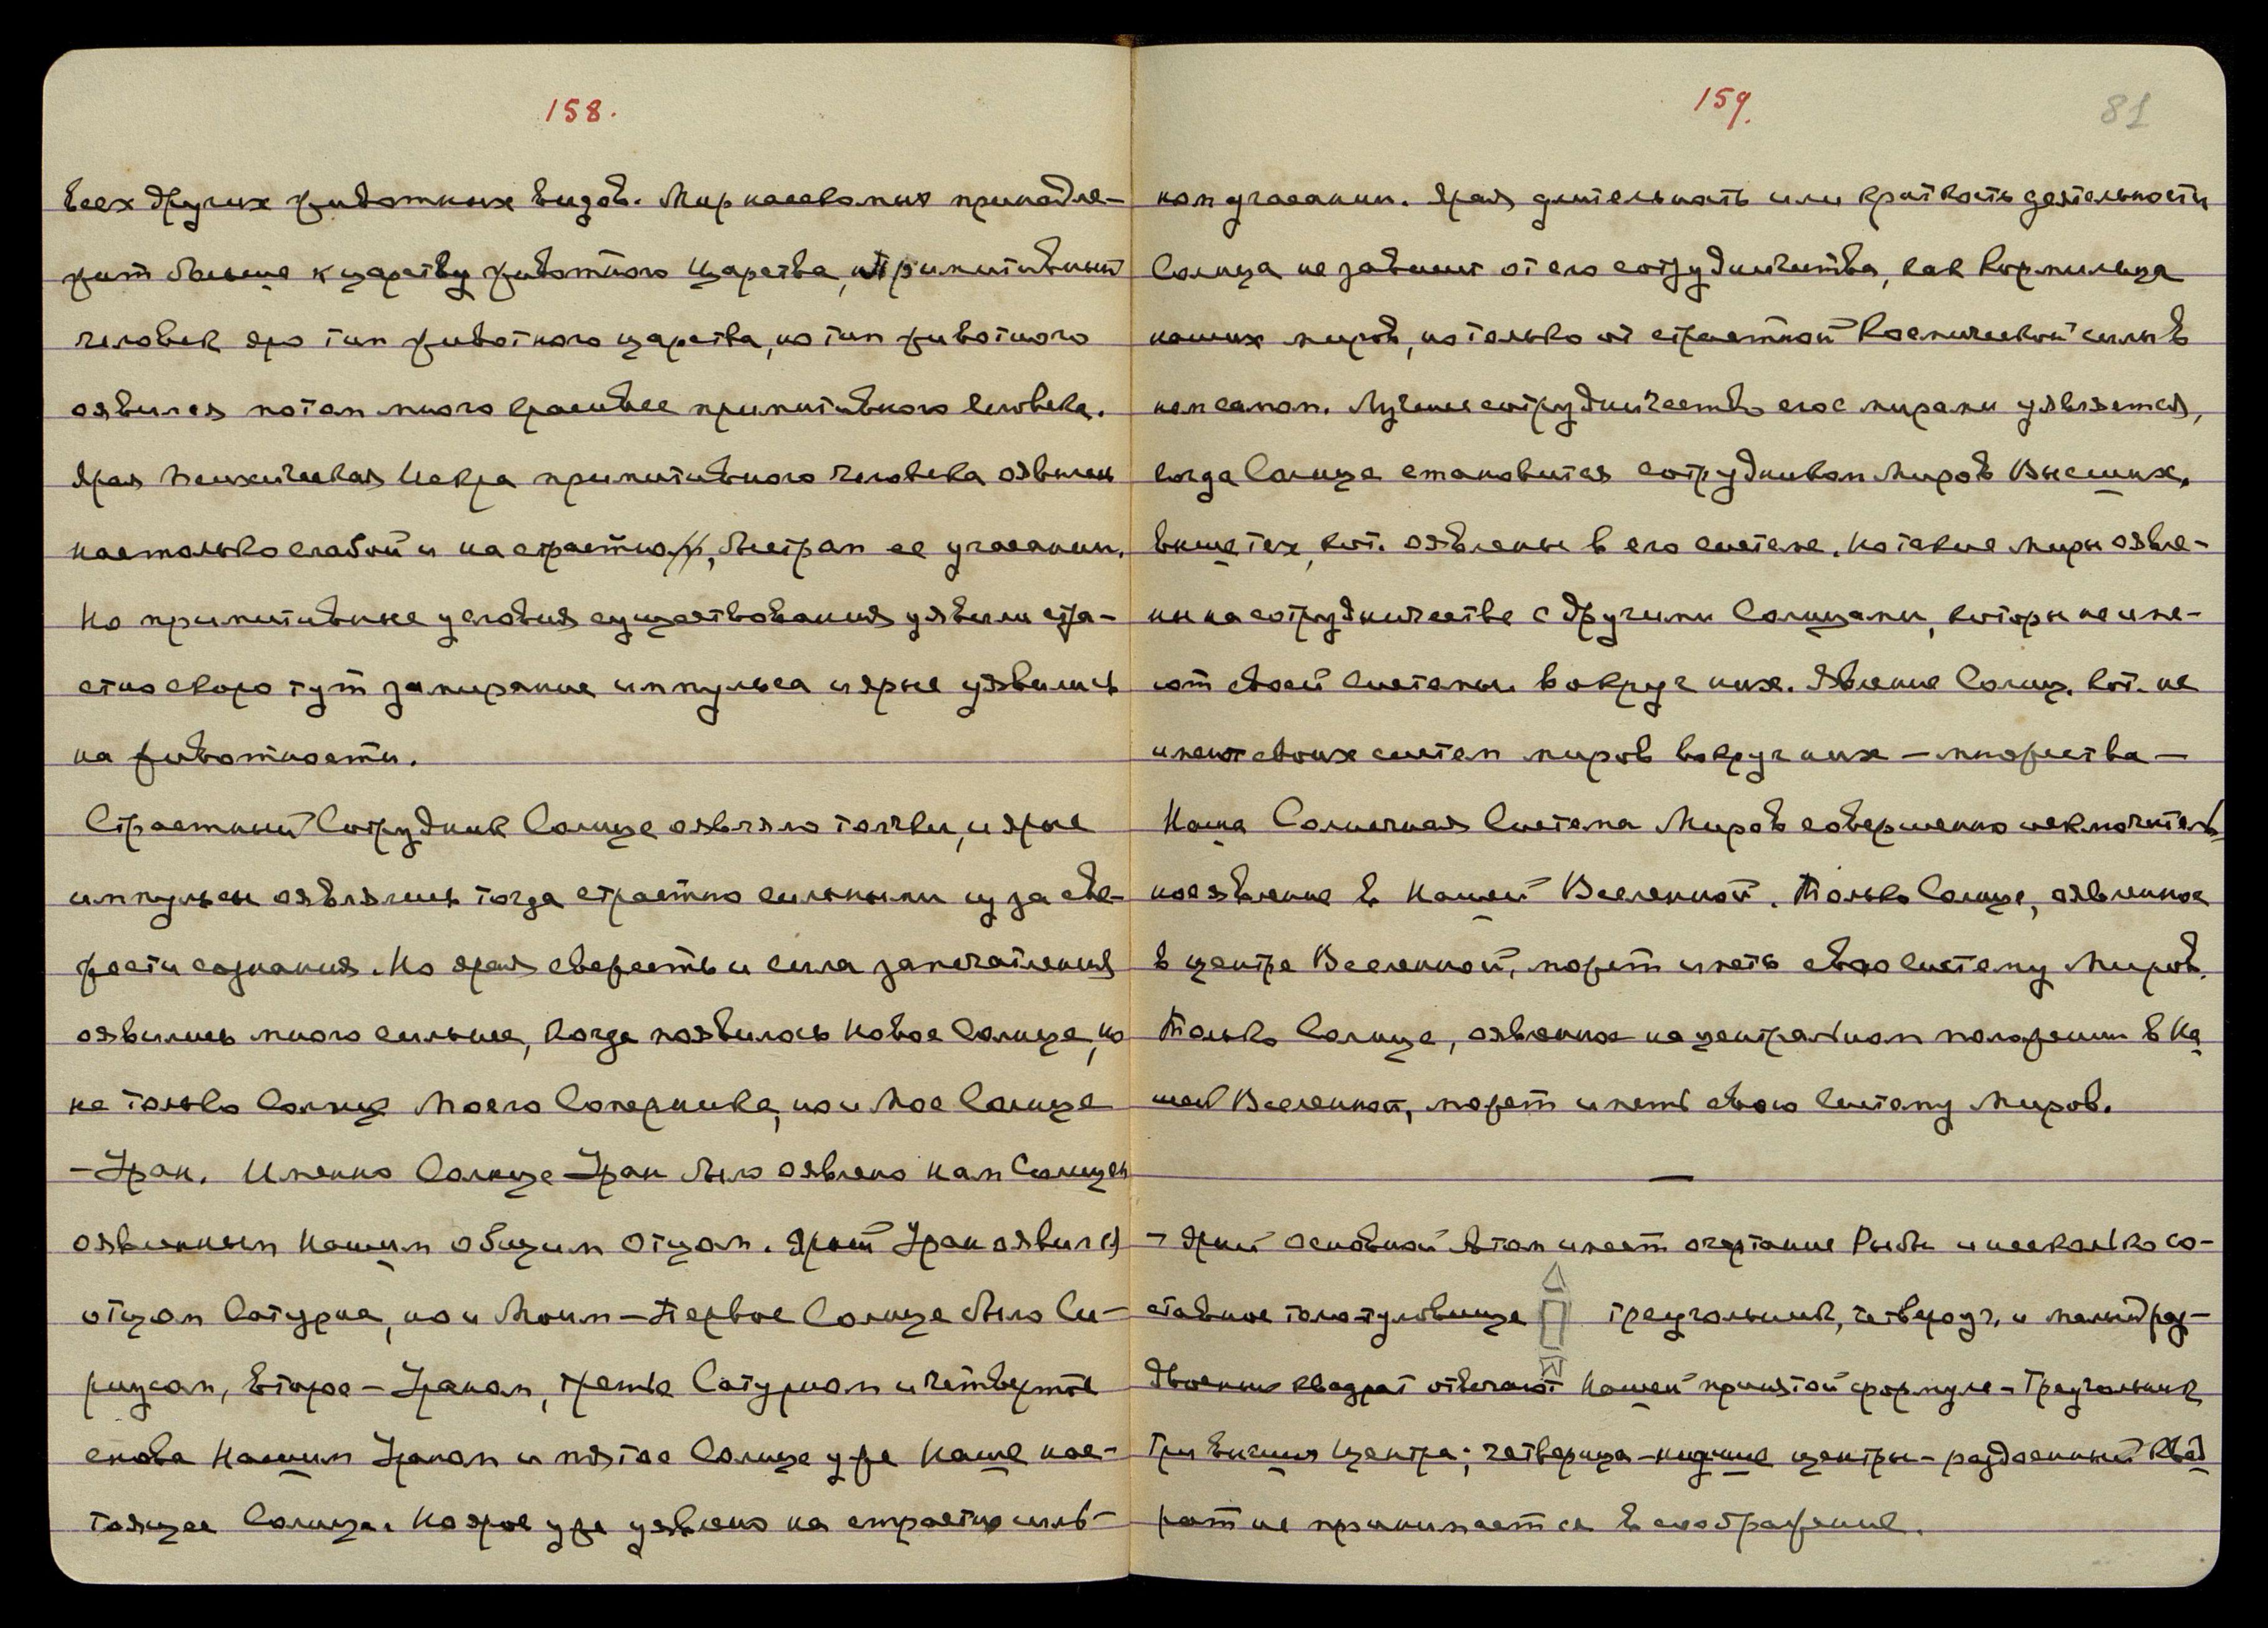 158.
всех других животных видов. Мир насекомых принадле-
жит больше к царству животного Царства, и примитивный
человек яро тип животного царства, но тип животного
оявился потом много красивее примитивного человека.
Ярая Психическая Искра примитивного человека оявлена
настолько слабой и на страстно, быстром ее угасании.
Но примитивные условия существования уявили стра-
стно скоро тут замирание импульса и ярые уявились
на животности.
Страстный Сотрудник Солнце оявляло толчки, и ярые
импульсы оявлялись тогда страстно сильными из за све-
жести сознания. Но ярая свежесть и сила запечатления
оявились много сильнее, когда появилось Новое Солнце, но
не только Солнце Моего Соперника, но и Мое Солнце
-Уран. Именно Солнце Уран было оявлено нам Солнцем
оявленным Нашим общим Отцом. Ярый Уран оявился
отцом Сатурна, но и Моим - Первое Солнце было Си-
риусом, второе - Ураном, третье Сатурном и четвертое
снова Нашим Ураном и пятое Солнце уже Наше нас-
тоящее Солнце. Но ярое уже уявлено на страстно силь-
159.
81
ном угасании. Ярая длительность или краткость деятельности
Солнца не зависит от его сотрудничества, как кормильца
наших миров, но только от страстной Космической силы в
нем самом. Лучшее сотрудничество его с мирами уявляется,
когда Солнце становится сотрудником Миров Высших,
выше тех, кот. оявлены в его системе. Но такие миры оявле-
ны на сотрудничестве с другими Солнцами, которы не име-
ют своей системы вокруг них. Явление Солнц, кот. не
имеют своих систем миров вокруг них - множества -
Наша Солнечная Система Миров совершенно исключитель
ное явление в Нашей Вселенной. Только Солнце, оявленное
в центре Вселенной, может иметь свою систему Миров.
Только Солнце, оявленное на центральном положении в На
шей Вселенной, может иметь свою Систему Миров.
—
- Ярый основной Атом имеет очертание Рыбы и несколько со-
ставное тело туловище треугольник, четвероуг. и малый раз-
двоенный квадрат отвечают Нашей принятой формуле - Треугольник
три высших Центра; четверица - низшие центры - раздвоенный Квад
рат не принимается в соображение.